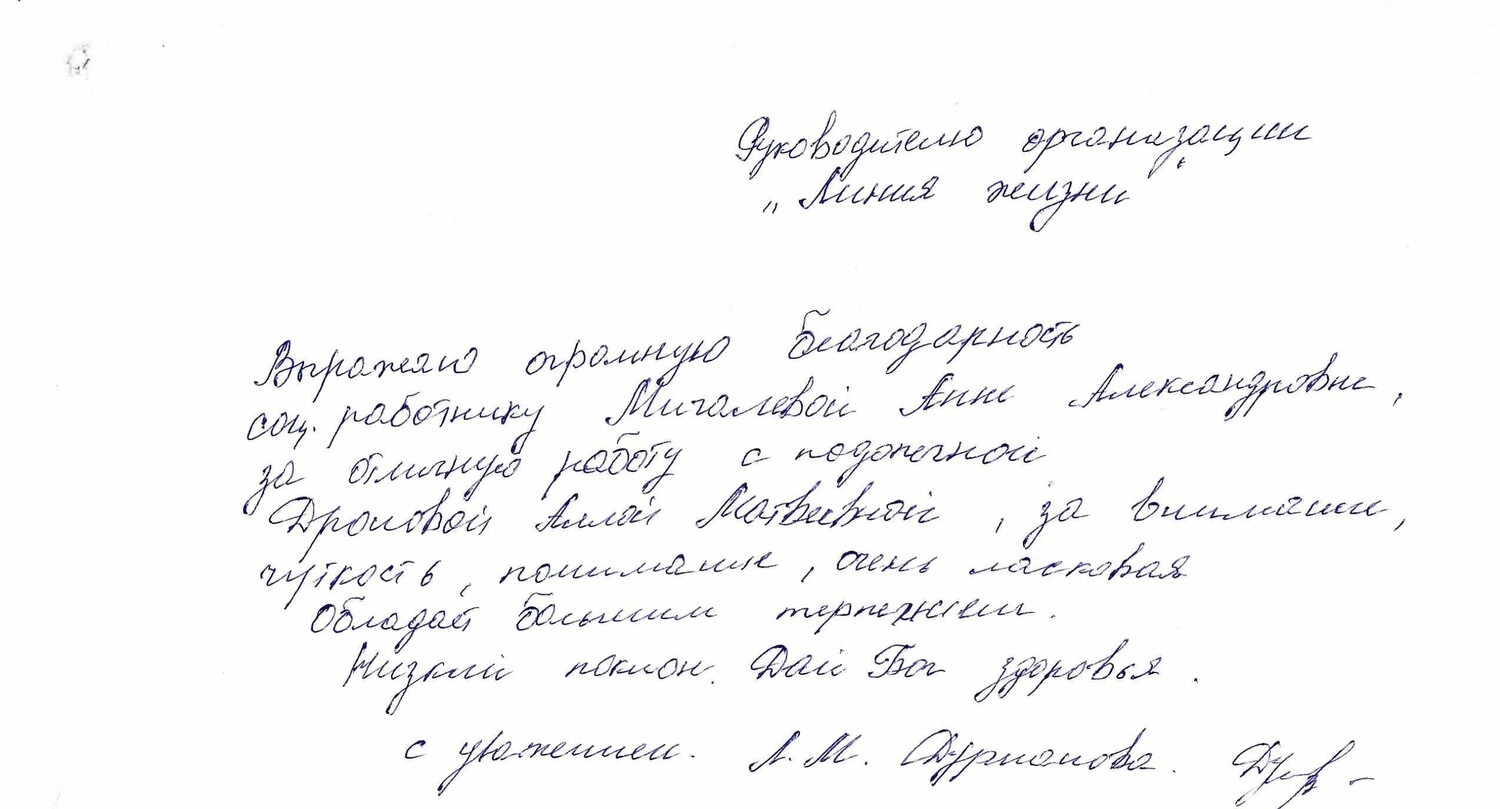 Руководителю организации
„Линия жизни“
Выражаю огромную благодарность
соц. работнику Мигалевой Анне Александровне,
за отличную работу с подопечной
Аллой Матвеевной, за внимание,
чуткость, понимание, очень ласковая
Обладает большим терпением.
Низкий поклон. Дай Бог здоровья.
с уважением. Л.М.